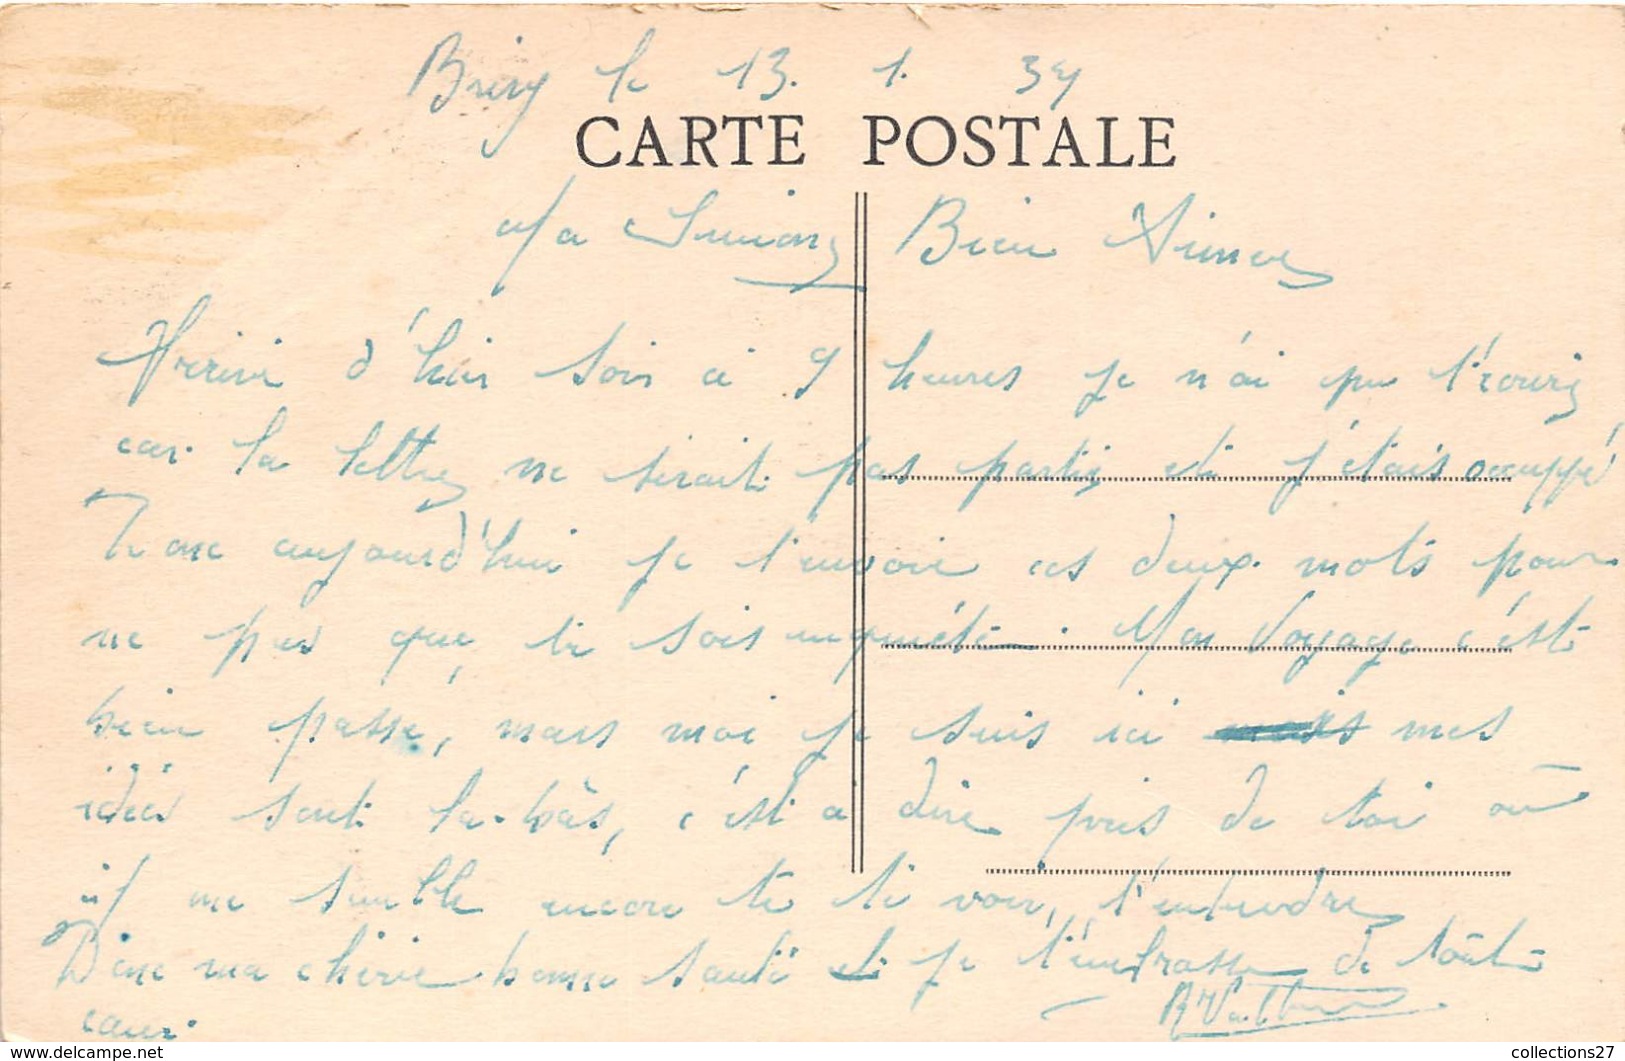 le 13. 1. 34
CARTE POSTALE
Ma Bien Aimée
Arrivé d'hier soir à 9 heures je n'ai pu t'écrire
car la lettre ne serait pas partie et j'étais occuppé
Donc aujourd'hui je t'envoie ces deux mots pour
ne pas que tu sois inquiète. Mon Voyage c'est
bien passé, mais moi je suis ici mais mes
idées sont la-bàs, c'est a dire près de toi où
il me semble encore te voir, t'entendre
Donc ma chérie bonne santé et je t'embrasse de tout
cœur
collections27